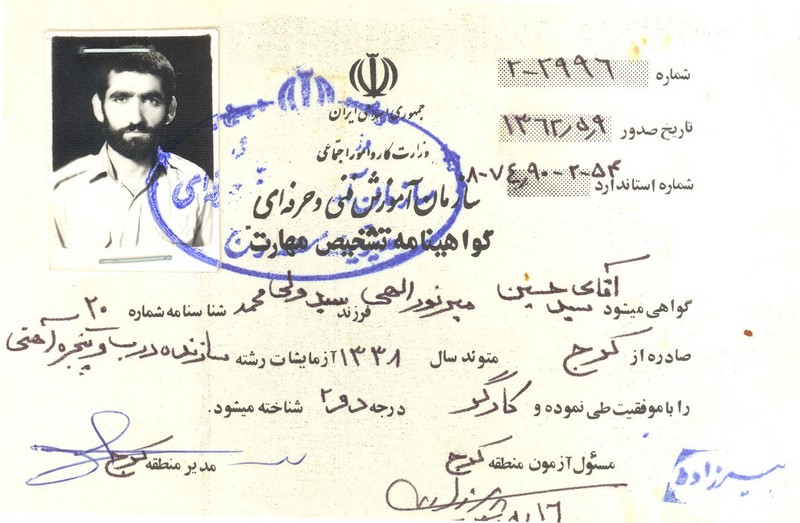 جمهوری اسلامی ایران
وزارت کار و امور اجتماعی
سازمان آموزش فنی و حرفه‌ای
گواهینامه تشخیص مهارت
شماره ۲-۲۹۹۶
تاریخ صدور ۱۳۶۲/۵/۹
شماره استاندارد ۸-۷۴/۹۰-۲-۵۴
گواهی میشود آقای سید حسین میرنورالهی فرزند سید ولی محمد شناسنامه شماره ۲۰
صادره از کرج متولد سال ۱۳۳۸ آزمایشات رشته سازنده درب و پنجره آهنی
را با موفقیت طی نموده و کارگر درجه دو ۲ شناخته میشود.
مسئول آزمون منطقه کرج مدیر منطقه کرج